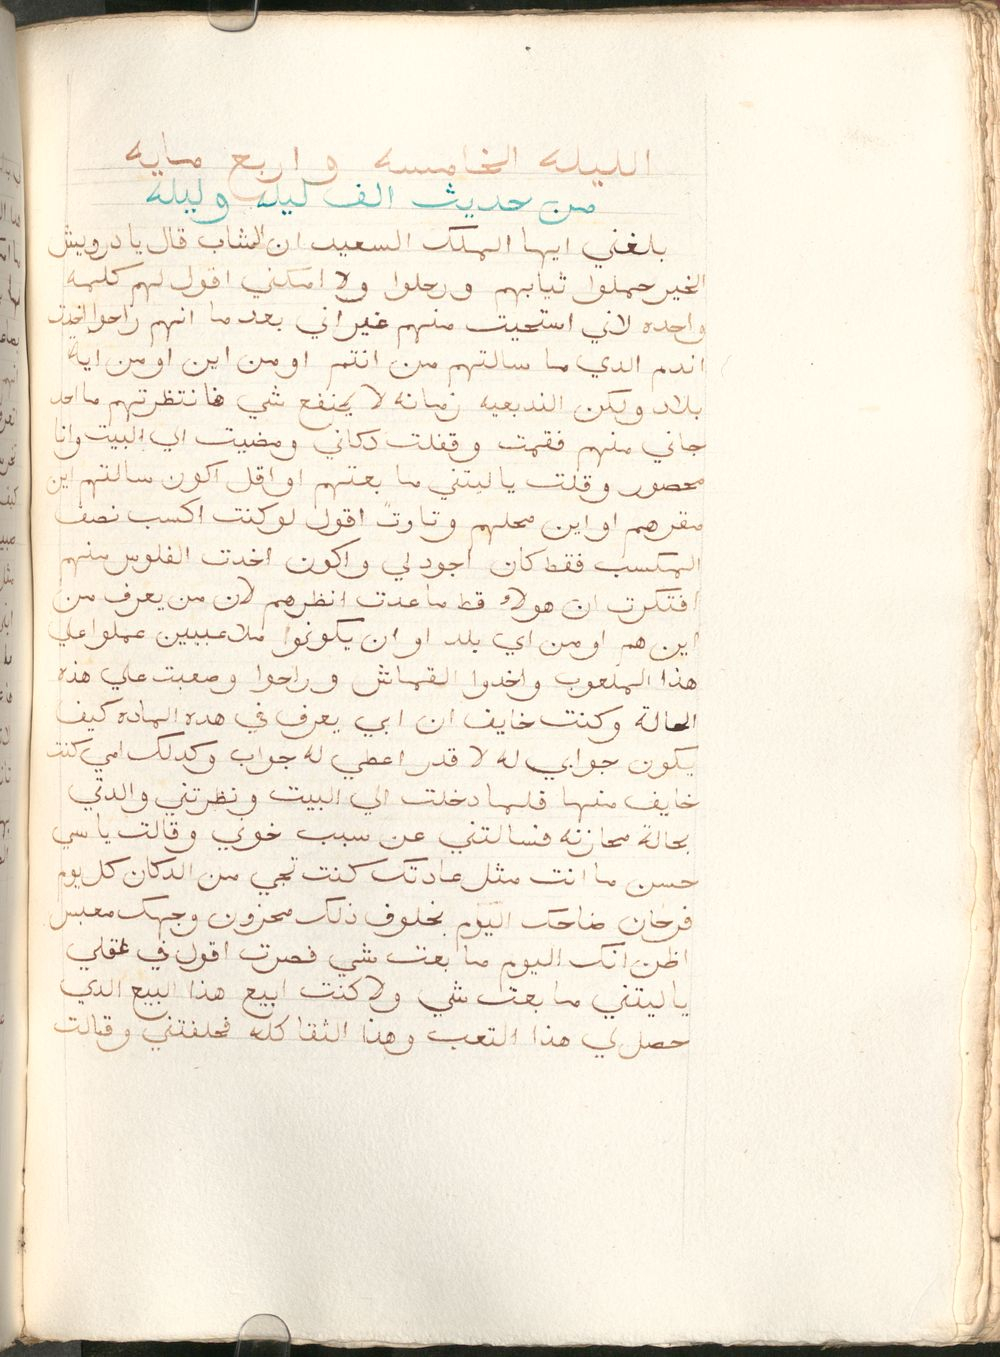 الليله الخامسه واربع مايه
من حديث الف ليله وليله
بلغني ايها الملك السعيد ان الشاب قال يا درويش
الخير حملوا ثيابهم ورحلوا ولا امكني اقول لهم كلمه
واحده لاني استحيت منهم غير اني بعد ما انهم راحوا اخدت
اندم الدي ما سالتهم من انتم او من اين او من ايه
بلاد ولكن الندبعيه زمانه لا ينفع شي فانتظرتهم ما احد
جاني منهم فقمت وقفلت دكاني ومضيت الي البيت وانا
محصور وقلت يا ليتني ما بعتهم او اقل اكون سالتهم اين
مقرهم او اين محلهم وتارتً اقول لو كنت اكسب نصف
المكسب فقط كان اجود لي واكون اخدت الفلوس منهم
افتكرت ان هولاء قط ما عدت انظرهم لان من يعرف من
اين هم او من اي بلد او ان يكونوا ملاعيبين عملوا علي
هذا الملعوب واخدوا القماش وراحوا وصعبت علي هذه
الحالة وكنت خايف ان ابي يعرف في هده الماده كيف
يكون جوابي له لا قدر اعطي له جواب وكدلك امي كنت
خايف منها فلما دخلت الي البيت ونظرتني والدتي
بحالة محازنه فسالتني عن سبب خوفي وقالت يا سي
حسن ما انت مثل عادتك كنت تجي من الدكان كل يوم
فرحان ضاحك اليوم بخلوف ذلك محزون وجهك معبس
اظن انك اليوم ما بعت شي فصرت اقول في عقلي
يا ليتني ما بعت شي ولا كنت ابيع هذا البيع الدي
حصل لي هذا التعب وهذا الثقا كله فحلفتني وقالت